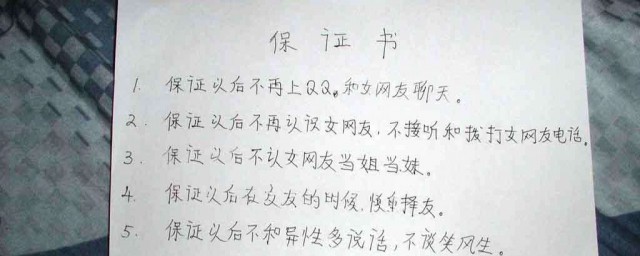 保证书
1. 保证以后不再上QQ。和女网友聊天。
2. 保证以后不再认识女网友，不接听和拨打女网友电话。
3. 保证以后不认女网友当姐当妹。
4. 保证以后在交友的时候，慎重择友。
5. 保证以后不和异性多说话，不谈笑风生。